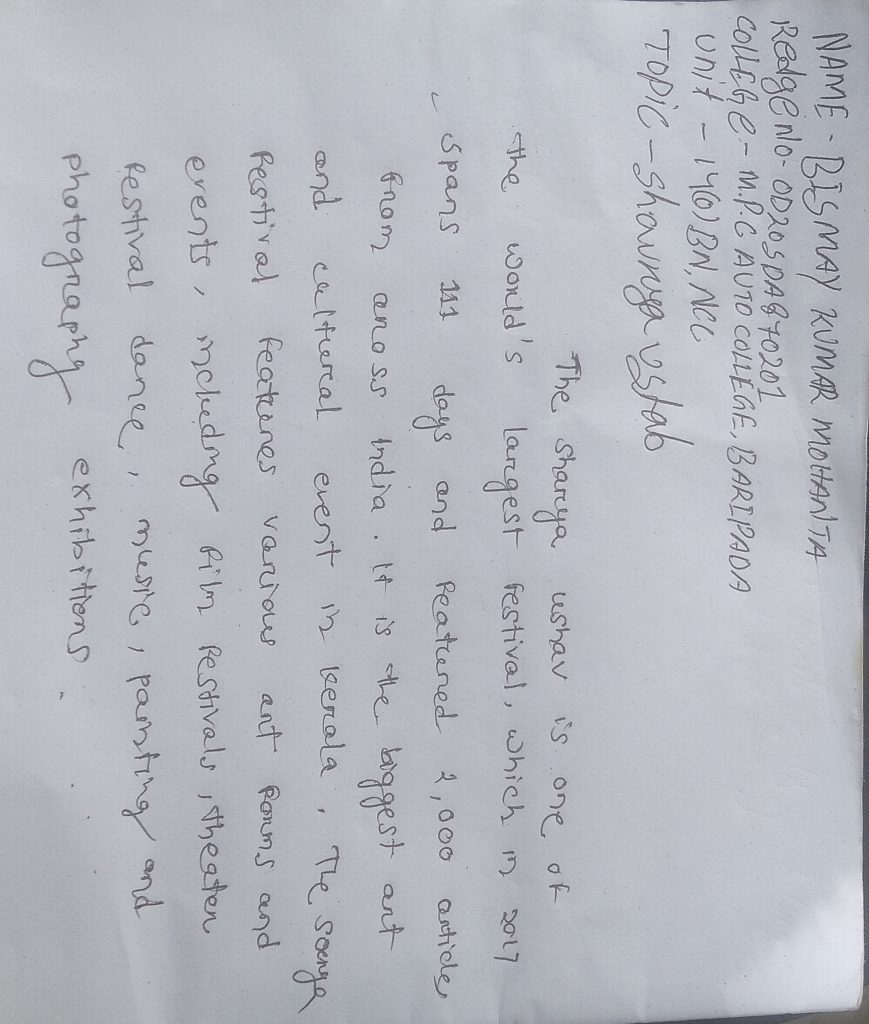 NAME - BISMAY KUMAR MOHANTA
Redge No - OD20SDA870201
COLLEGE - M.P.C AUTO COLLEGE, BARIPADA
Unit - 1 (6) BN, NCC
TOPIC - Shaurya ustab
The sharya ustav is one of
the world's largest festival, which in 2017
spans 111 days and featured 2,000 article
from aross india. It is the biggest art
and cultural event in kerala. The soerya
Festival features various art forms and
events, including film festivals, theater
festival dance, music, painting and
photography exhibitions.